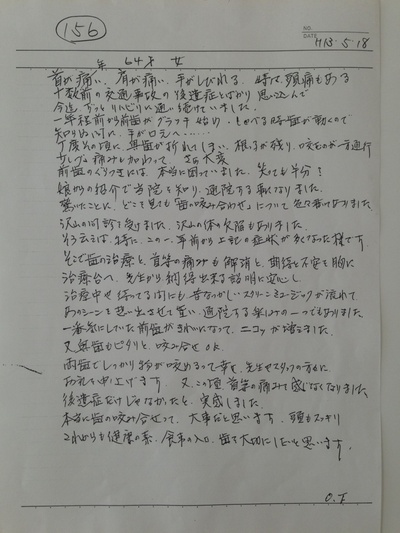 156
NO.
DATE H13・5・18
64才 女
首が痛い、肩が痛い、手がしびれる、時には頭痛もある
十数年前の交通事故の後遺症とばかり思い込んで
今迄、ずっとリハビリに通い続けていました。
一年程前から前歯がグラグラし始め、ものがたべる時歯が動くので
知らぬ間に、手が口元へ‥‥‥
丁度その頃に、奥歯が折れてしまい、根っ子が残り、咬むのが一方通行
痛みも加わって、さあ大変
前歯のぐらつきには、本当に困っていました、笑っても半分!
娘からの紹介で当院を知り、通院する事になりました。
驚いたことに、どこを見ても"歯の咬み合わせ"について色々書いてありました
沢山の問診を受けました、沢山の体の欠陥もありました。
そう云えば、特に、この一、二年前から上記の症状が多くなった様です
そこで歯の治療と、首等の痛みも解消と、期待と不安を胸に
治療台へ、先生から納得出来る説明に安心し
治療中や待ってる間にも昔なつかしいスクリーンミュージックが流れて
あのシーンを思い出させて貰い、通院する楽しみの一つでもありました
一番気にしていた前歯がきれいになって、ニコッが増えました。
又奥歯もピタリと、咬み合せOK
両歯でしっかり物が咬めるって幸せ、先生やスタッフの方々に
お礼を申し上げます 又、この頃首等の痛みも感じなくなりました
後遺症だけじゃなかったと、実感しました。
本当に歯の咬み合せって、大事だと思います、頭もスッキリ
これからも健康の素、食事の入口、歯を大切にしたいと思います。
O.I